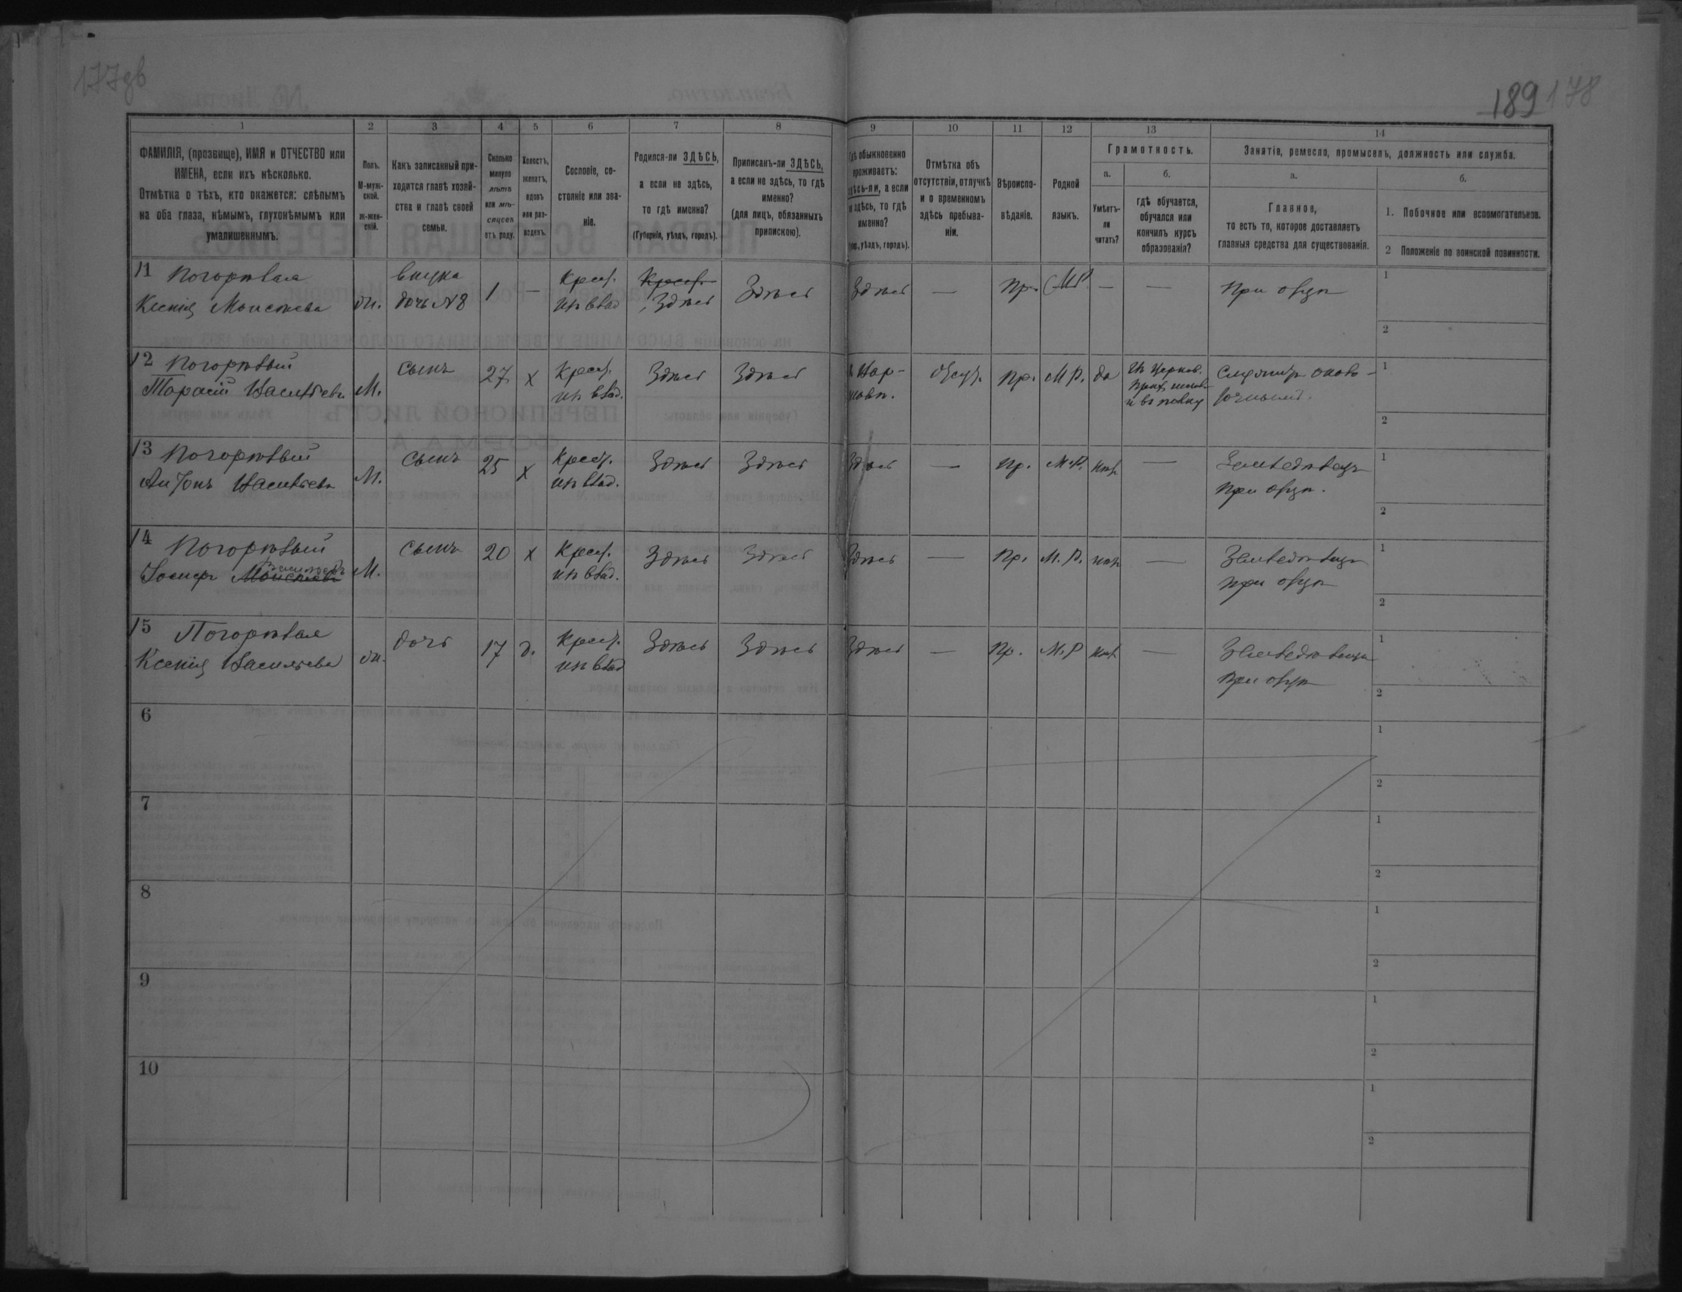 177об
189 178
1
2
3
4
5
6
7
8
9
10
11
12
13
14
ФАМИЛІЯ, (прозвище), ИМЯ и ОТЧЕСТВО или
ИМЕНА, если ихъ нѣсколько.
Отмѣтка о тѣхъ, кто окажется: слѣпымъ
на оба глаза, нѣмымъ, глухонѣмымъ или
умалишеннымъ.
Полъ.
М-муж-
ской.
ж-жен-
скій.
Какъ записанный при-
ходится главѣ хозяй-
ства и главѣ своей
семьи.
Сколько
минуло
лѣтъ
или мѣ-
сяцевъ
отъ роду.
Холостъ,
женатъ,
вдовъ
или раз-
веденъ.
Сословіе, со-
стояніе или зва-
ніе.
Родился-ли ЗДѢСЬ,
а если не здѣсь,
то гдѣ именно?
(Губернія, уѣздъ, городъ).
Приписанъ-ли ЗДѢСЬ,
а если не здѣсь, то гдѣ
именно?
(для лицъ, обязанныхъ
припискою).
обыкновенно
проживаетъ:
здѣсь-ли, а если
не здѣсь, то гдѣ
именно?
уѣздъ, городъ).
Отмѣтка объ
отсутствіи, отлучкѣ
и о временномъ
здѣсь пребыва-
ніи.
Вѣроиспо-
вѣданіе.
Родной
языкъ.
Грамотность.
а.
б.
Умѣетъ-
ли
читать?
гдѣ обучается,
обучался или
кончилъ курсъ
образованія?
Занятіе, ремесло, промыселъ, должность или служба.
а.
б.
Главное,
то есть то, которое доставляетъ
главныя средства для существованія.
1. Побочное или вспомогательное.
2 Положеніе по воинской повинности.
11 Погорѣвая
Ксенія Моисѣева
ж.
внучка
дочь №8
1
—
Крест.
изъ влад.
Здѣсь
Здѣсь
Здѣсь
—
Пр.
М.Р.
—
—
При отцѣ
1
2
12 Погорѣвый
Тарасій Васильевъ
М.
сынъ
27
х
Крест.
изъ влад.
Здѣсь
Здѣсь
отсут.
Пр.
М.Р.
да
1
2
13 Погорѣвый
Антонъ Васильевъ
М.
сынъ
25
х
Крест.
изъ влад.
Здѣсь
Здѣсь
Здѣсь
—
Пр.
М.Р.
нѣт.
—
Земледѣлецъ
при отцѣ.
1
2
14 Погорѣвый
Іосифъ Моисѣевъ Васильевъ
М.
сынъ
20
х
Крест.
изъ влад.
Здѣсь
Здѣсь
Здѣсь
—
Пр.
М.Р.
нѣт.
—
Земледѣлецъ
при отцѣ
1
2
15 Погорѣвая
Ксенія Васильева
ж.
дочь
17
д.
Крест.
изъ влад.
Здѣсь
Здѣсь
Здѣсь
—
Пр.
М.Р
нѣт.
—
при отцѣ
1
2
6
1
2
7
1
2
8
1
2
9
1
2
10
1
2